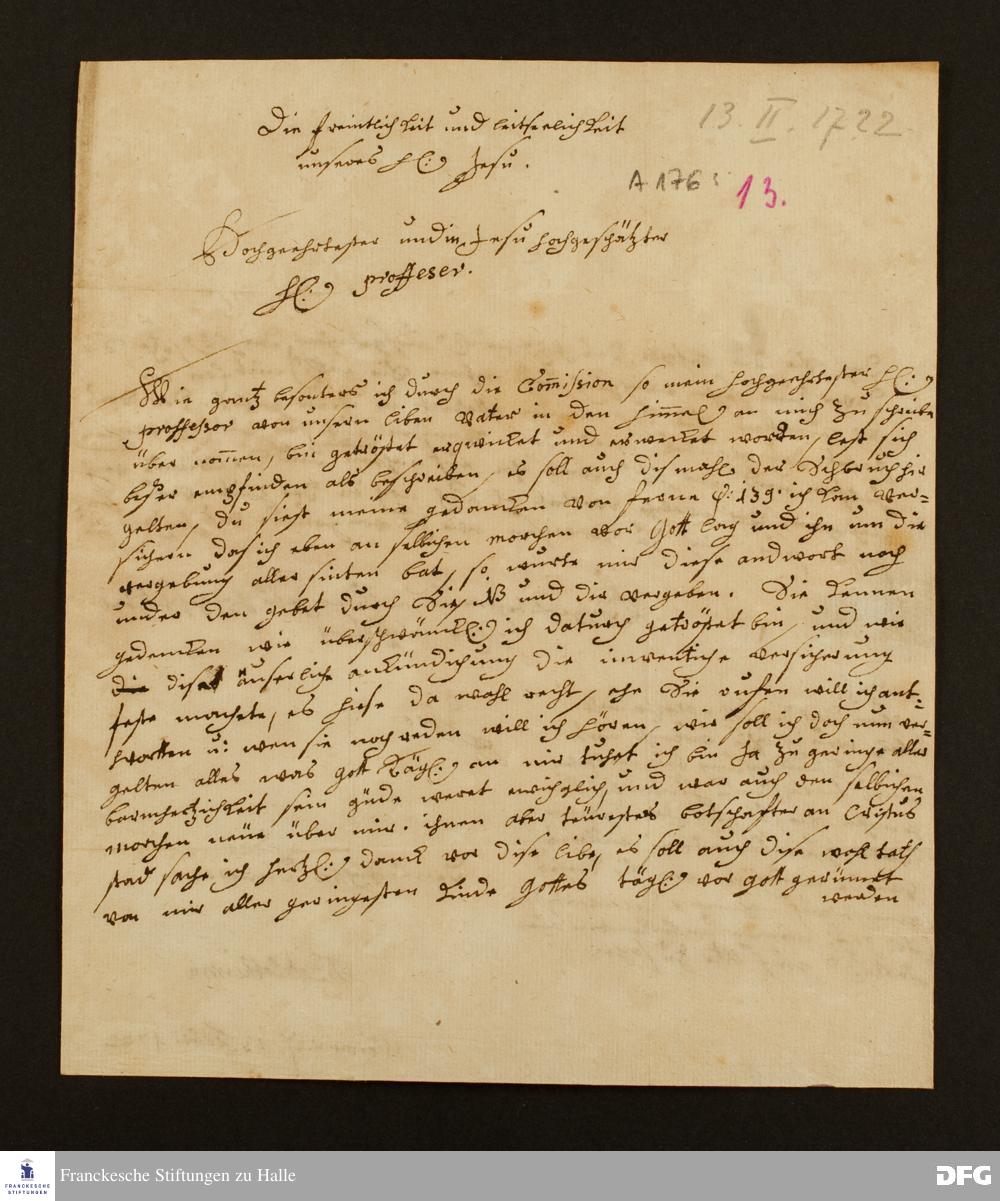 Die freintlichkeit und leitseelichkeit
unseres H: Jesu.
13. II. 1722
A 176 : 13.
Hochgeehrtester und in Jesu hochgeschätzter
H: proffeser.
Wie gantz besonters ich durch die Com̅ission so mein hochgeehrtester H:
proffessor von unsern liben Vater in den Him̅el an mich zu schreiben
über nom̅en, bin getröstet erqwicket und erwecket worden, lest sich
beser empfinden als beschreiben, es soll auch dismahl der Schbruch hir
gelten, du siest meine gedancken von ferne Ps: 139. ich kan ver=
sichern das ich eben an selbichen morchen vor Gott lag und ihn um die
vergebung aller sinten bat, so wurte mir diese andwort noch
under den gebet durch Sie, und dir vergeben. Sie kennen
gedencken wie überschwänckl: ich daturch getröstet bin, und wie
dise äuserliche ankündichung die inwentiche versicherung
feste machete, es hiese da wohl recht, ehe Sie rufen will ich ant=
wortten u: wen sie noch reden will ich hören, wie soll ich doch nun ver=
gelten alles was gott Tägl: an mir tuhet ich bin ja zu geringe aller
barmhertzichkeit sein güde weret ewichglich, und war auch den selbichen
morchen neue über mir. ihnen aber teurestes botschafter an Cristus
stad sache ich hertzl: danck vor dise libe, es soll auch dise wohl taht
von mir aller geringesten kinde Gottes tägl: vor gott gerümet
werden
Franckesche Stiftungen zu Halle
FRANCKESCHE
STIFTUNGEN
DFG